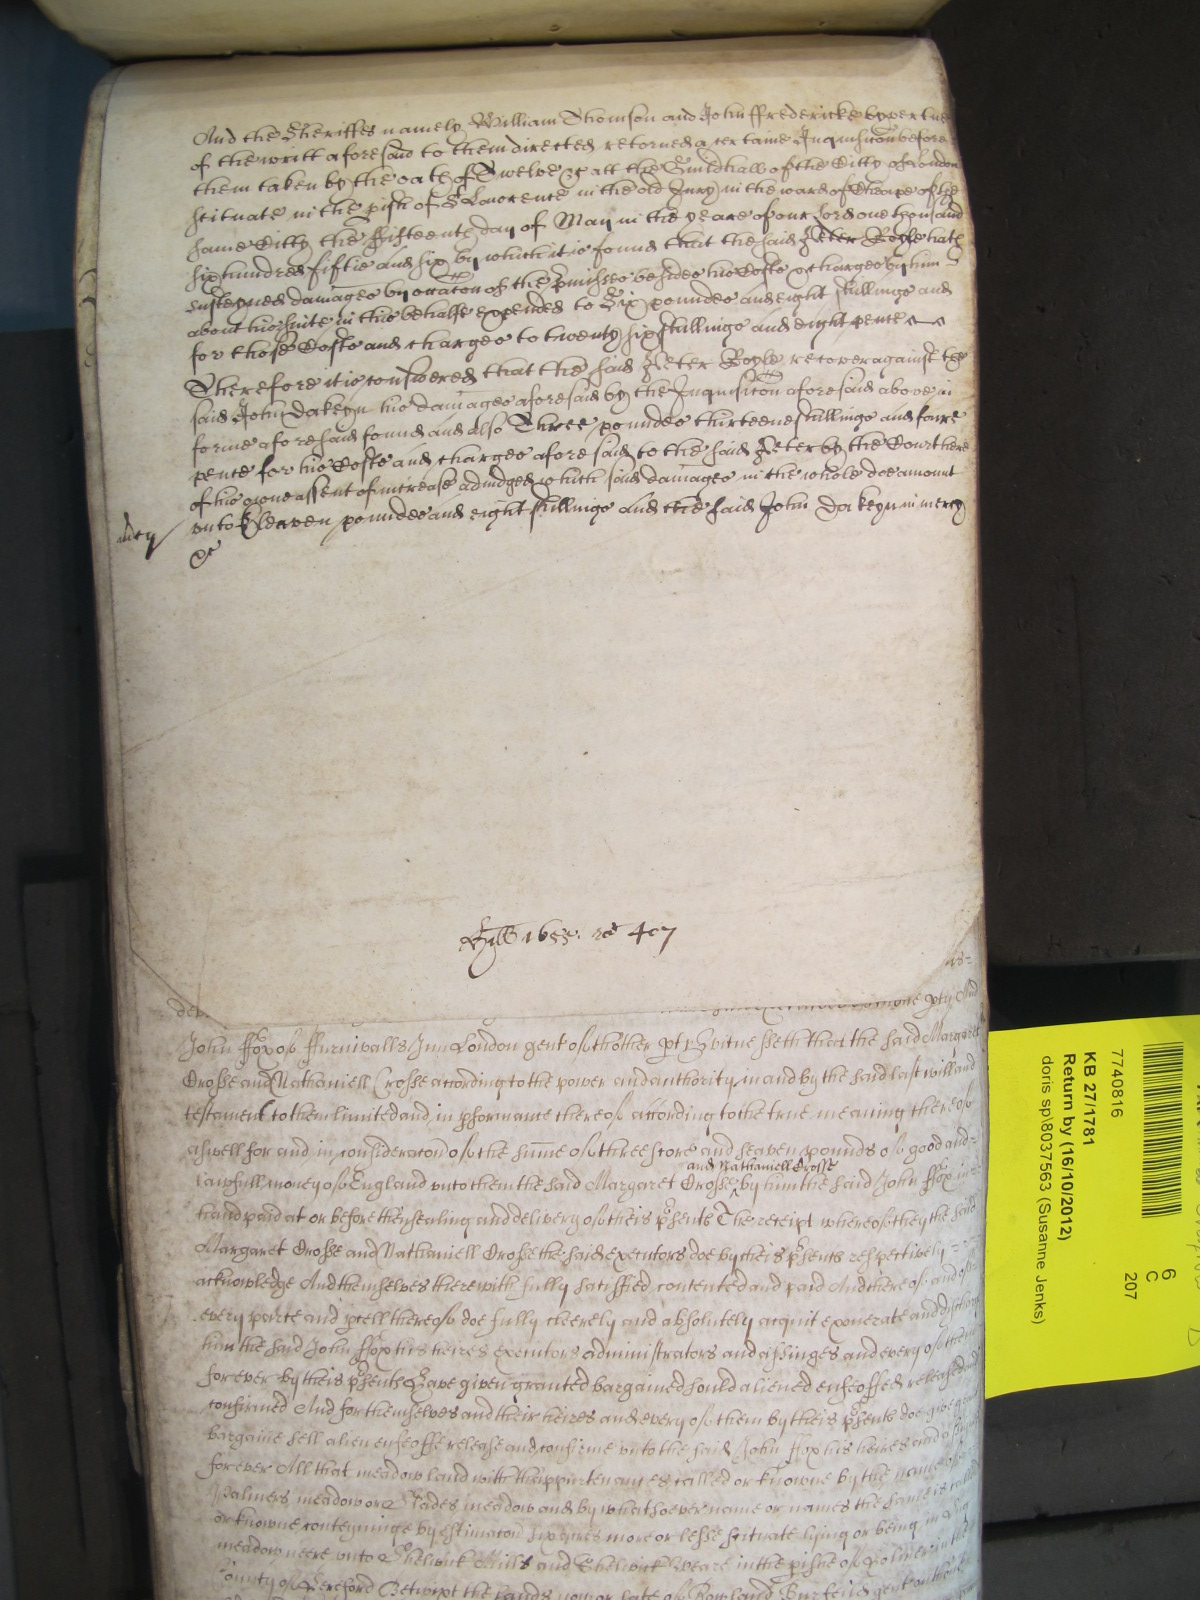 And the Sheriffes namely William Thomson and John ffredericke by vertue
of the writt aforesaid to them directed retorned a certaine Inquisicon before
them taken by the oath of Twelve &c att the Guildhall of the Citty of London
scituate in the pish of St Laurence in the old Jury in the ward of Cheape of the
same Citty the fifteenth day of May in the yeare of our Lord one thousand
six hundred fiftie and six by which it is found that the said Peter Boyle hath
susteyned damages by occacon of the pmisses besides his Costs & charges by him
about his suite in this behalfe expended to Six pounds and eight shillings and
for those Costs and charges to twenty six shillings and eight pence
Therefore it is considered that the said Peter Boyle recover against the
said John Dakeyn his damages aforesaid by the Inquisicon aforesaid above in
forme aforesaid found and also Three pounds thirteene shillings and foure
pence for his Costs and charges aforesaid to the said Peter by the Court here
of his owne assent of increase adiudged which said damages in the whole doe amount
unto Eleaven pounds and eight shillings and the said John Dakeyn in mercy
mcy
&c
Hill 1655. ro 407
one pty And
John ffox of ffurnivalls Inn London gent of thother pt Witnesseth that the said Margarett
Crosse and Nathaniell Crosse according to the power and authority in and by the said last will and
testament to them limited and in pformance thereof according to the true meaning thereof
aswell for and in consideracon of the sume of three score and seaven pounds of good and
lawfull money of England unto them the said Margaret Crosse and Nathaniell Crosse by him the said John ffox in
hand paid at or before thensealing and delivery of theis psents The receipt whereof they the said
Margaret Crosse and Nathaniell Crosse the said executors doe by theis psents respectively
acknowledge And themselves therewith fully satisfied contented and paid And thereof and of
every parte and pcell thereof doe fully cleerely and absolutely acquit exonerate and discharge
him the said John ffox his heires executors administrators and assignes and every of them
for ever by theis psents Have given granted bargained sould aliened enfeoffed released and
confirmed And for themselves and their heires and every of them by theis psents doe give grant
bargaine sell alien enfeoffe release and confirme unto the said John ffox his heires and assignes
forever All that meadow land with thappurtenances called or knowne by the name of
Palmers meadow or Rades meadow and by whatsoever name or names the same is called
or knowne conteyninge by estimacon six acres more or lesse scituate lying or being in a
meadow neere unto Shelwick Mills and Shelwick Weare in the pishe of Holmer in the
County of Hereford Betwixt the lands now or late of Rowland gent
7740816
KB 27/1781
Return by (16/10/2012)
doris sp\8037563 (Susanne Jenks)
6
C
207